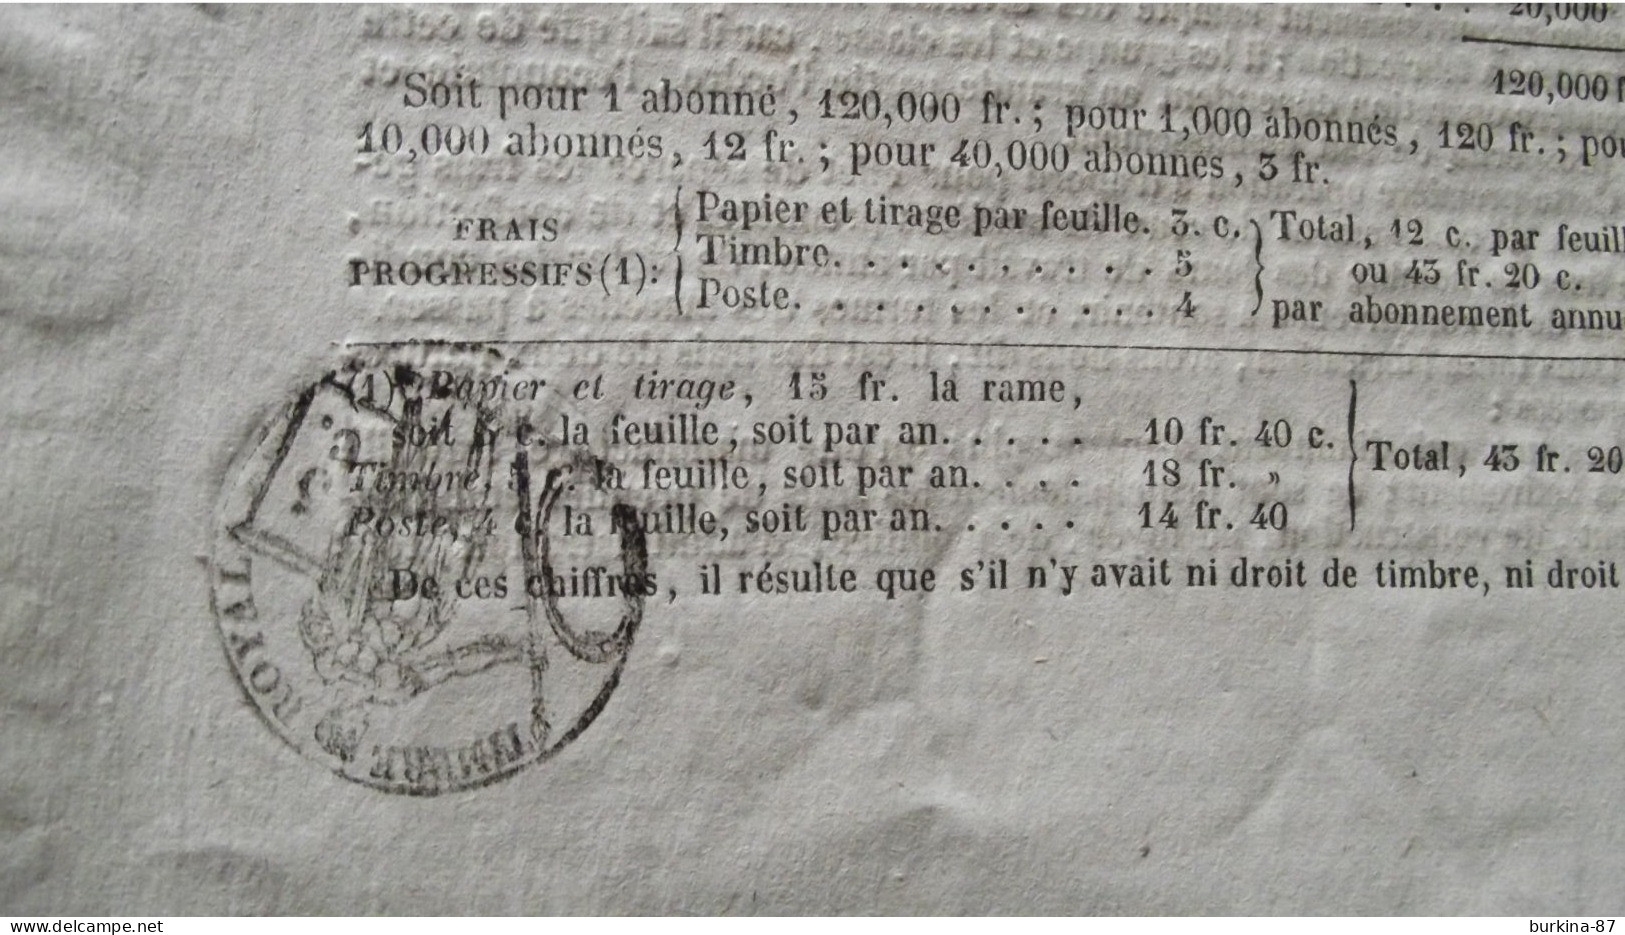 20,000
120,000 f
Soit pour 1 abonné, 120,000 fr.; pour 1,000 abonnés, 120 fr.; pou
10,000 abonnés, 12 fr.; pour 40,000 abonnés, 3 fr.
FRAIS
PROGRESSIFS (1):
Papier et tirage par feuille. 3. c.
Timbre. . . . . . . . . . 5
Poste. . . . . . . . . . . 4
Total, 12 c. par feuill
ou 43 fr. 20 c.
par abonnement annu
(1) Papier et tirage, 15 fr. la rame,
soit 3 c. la feuille, soit par an. . . . . 10 fr. 40 c.
Timbre, 5 c. la feuille, soit par an. . . . 18 fr. »
Poste, 4 c. la feuille, soit par an. . . . . 14 fr. 40
Total, 43 fr. 20
De ces chiffres, il résulte que s'il n'y avait ni droit de timbre, ni droit
TIMBRE ROYAL
burkina-87